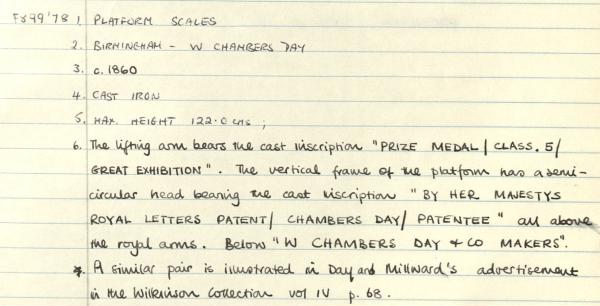 F899'78 1. PLATFORM SCALES
2. BIRMINGHAM - W CHAMBERS DAY
3. c. 1860
4. CAST IRON
5. MAX. HEIGHT 122.0 CMS ;
6. The lifting arm bears the cast inscription "PRIZE MEDAL / CLASS. 5 /
GREAT EXHIBITION". The vertical frame of the platform has a semi-
circular head bearing the cast inscription "BY HER MAJESTYS
ROYAL LETTERS PATENT / CHAMBERS DAY / PATENTEE" all above
the royal arms. Below "W CHAMBERS DAY & CO MAKERS".
7. A similar pair is illustrated in Day and Millward's advertisement
in the Wilkinson Collection vol IV p. 68.